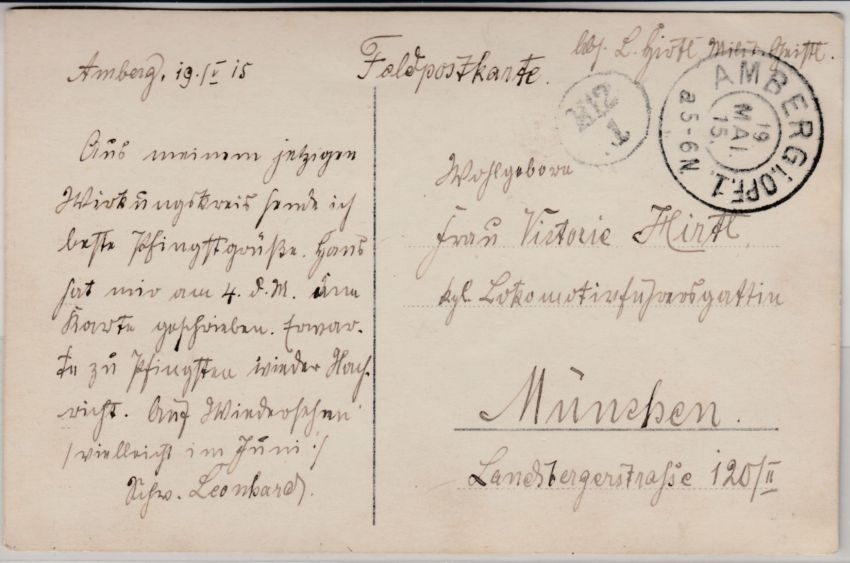 Amberg, 19./V 15
Feldpostkarte.
Abs. L. Hirtl, Milit. Geistl.
M12
1
AMBERG i. OPF. 1.
19
MAI.
15.
a 5-6 N
Aus meinem jetzigen
Wirkungskreis sende ich
beste Pfingstgrüße. Hans
hat mir am 4. d. M. eine
Karte geschrieben. Erwar-
te zu Pfingsten wieder Nach-
richt. Auf Wiedersehen
/:vielleicht im Juni:/
Schw. Leonhard.
Wohlgeborn
Frau Viktorie Hirtl,
kgl. Lokomotivführersgattin
München.
Landsbergerstrasse 120/II